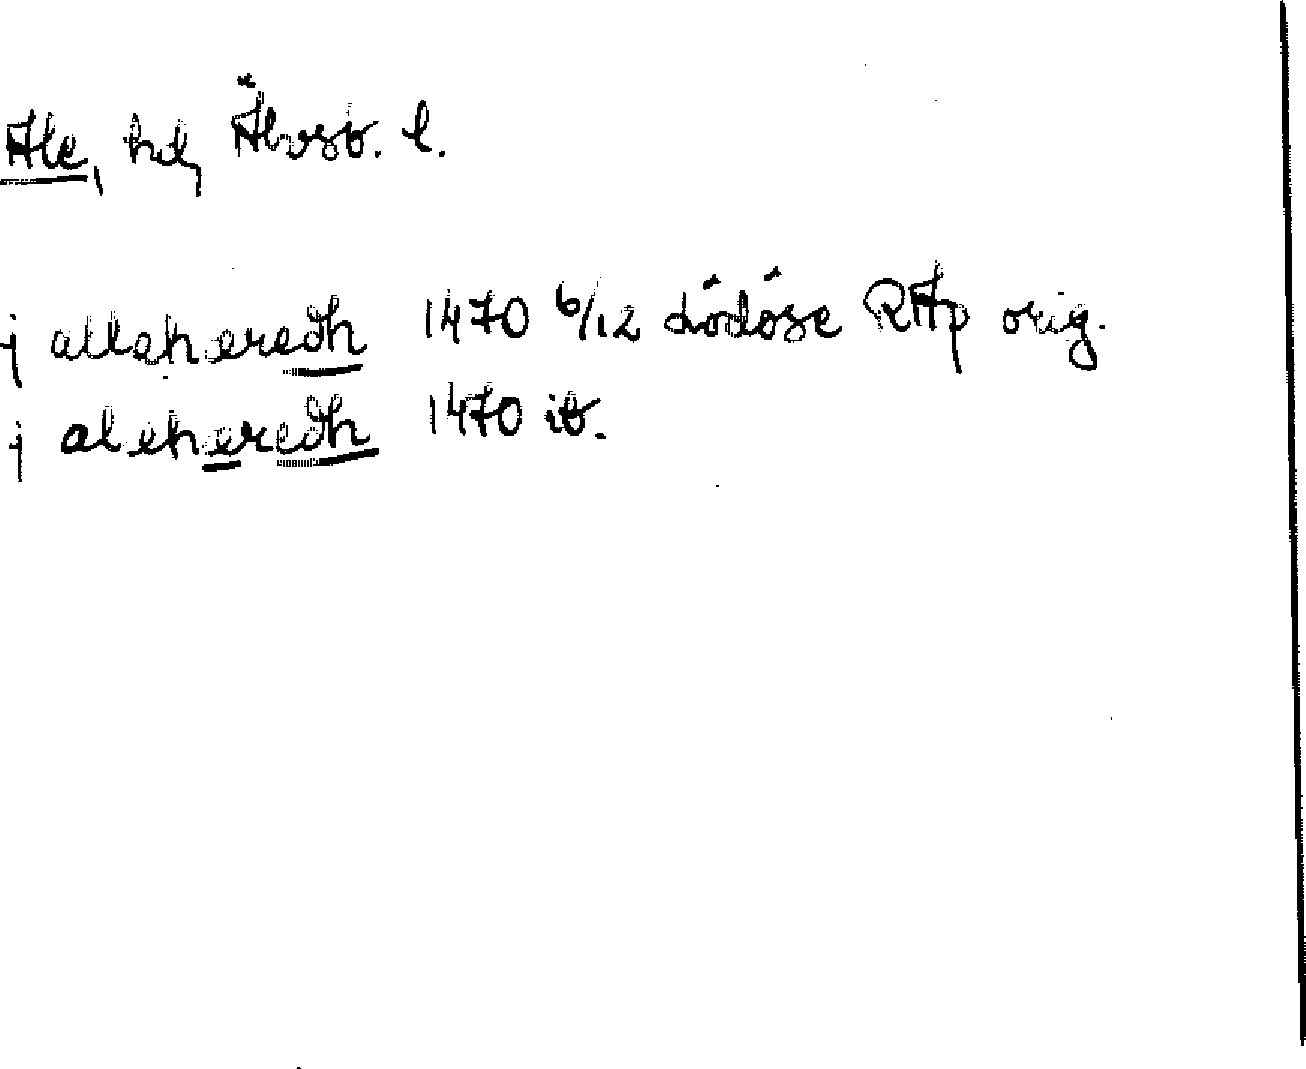 Ale, hd, Älvsb. l.
j alleheredh 1470 6/12 Lödöse RAp orig.
j aleheredh 1470 ib.